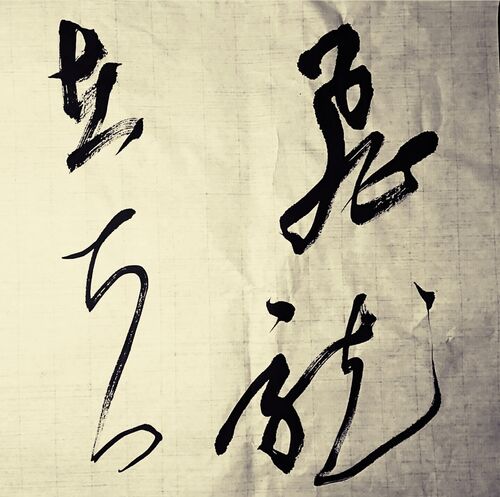 飛龍
在天